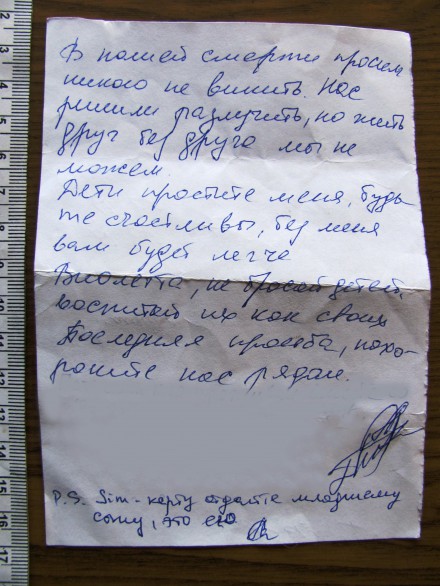 В нашей смерти просим
никого не винить. Нас
решили разлучить, но жить
друг без друга мы не
можем.
Дети простите меня, будь-
те счастливы, без меня
вам будет легче
Виолетта, не бросай детей,
воспитай их как своих
Последняя просьба, похо-
роните нас рядом.
P.S. Sim-карту отдайте младшему
сыну, это его
2
3
4
5
6
7
8
9
10
11
12
13
14
15
16
17